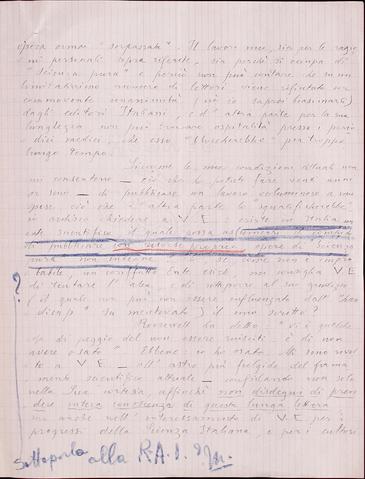 opera ormai "sorpassata". Il lavoro mio, sia per le ragio
ni personali sopra riferite, sia perchè si occupa di
"scienza pura" e perciò non può contare che su un
limitatissimo numero di lettori viene rifiutato con
commovente unanimità (nè io saprei biasimarli)
dagli editori Italiani, e d'altra parte per la sua
lunghezza non può trovare ospitalità presso i perio
dici medici, che esso per troppo
lungo tempo.
Siccome le mie condizioni attuali non
mi consentono — ciò che potuto fare venti anni
or sono — di pubblicare un lavoro voluminoso a mie
spese ciò che d'altra parte lo "squalificherebbe"
io ardisco chiedere a V.E. esiste in Italia un
ente scientifico il quale possa assumersi il compito
di pubblicare con risorse proprie opere di scienza
pura non
un Ente esiste, mi consiglia V.E
di tentare l'alea e di sottoporre al suo giudizio
(il quale non può non essere influenzato dall'"han
dicap" su menzionato) il mio scritto?
Roosevelt ha detto: "Vi è qualche
cosa di peggio del non essere riusciti: è di non
avere osato". Ebbene: io ho osato. Mi sono rivol
to a V.E. — all'astro più fulgido del firma
mento scientifico attuale — confidando non solo
nella Sua cortesia, affinchè non disdegni di pren
dere intera conoscenza di questa lunga lettera
ma anche nell'interessamento di V.E. per i
progressi della Scienza Italiana, e per i cultori
?
Sottoporla alla R.A.I.?